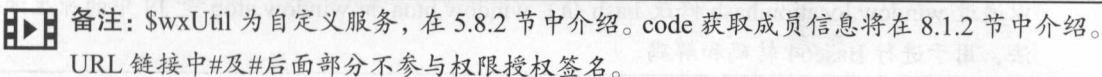 备注：$wxUtil 为自定义服务，在 5.8.2 节中介绍。code 获取成员信息将在 8.1.2 节中介绍。
URL 链接中#及#后面部分不参与权限授权签名。